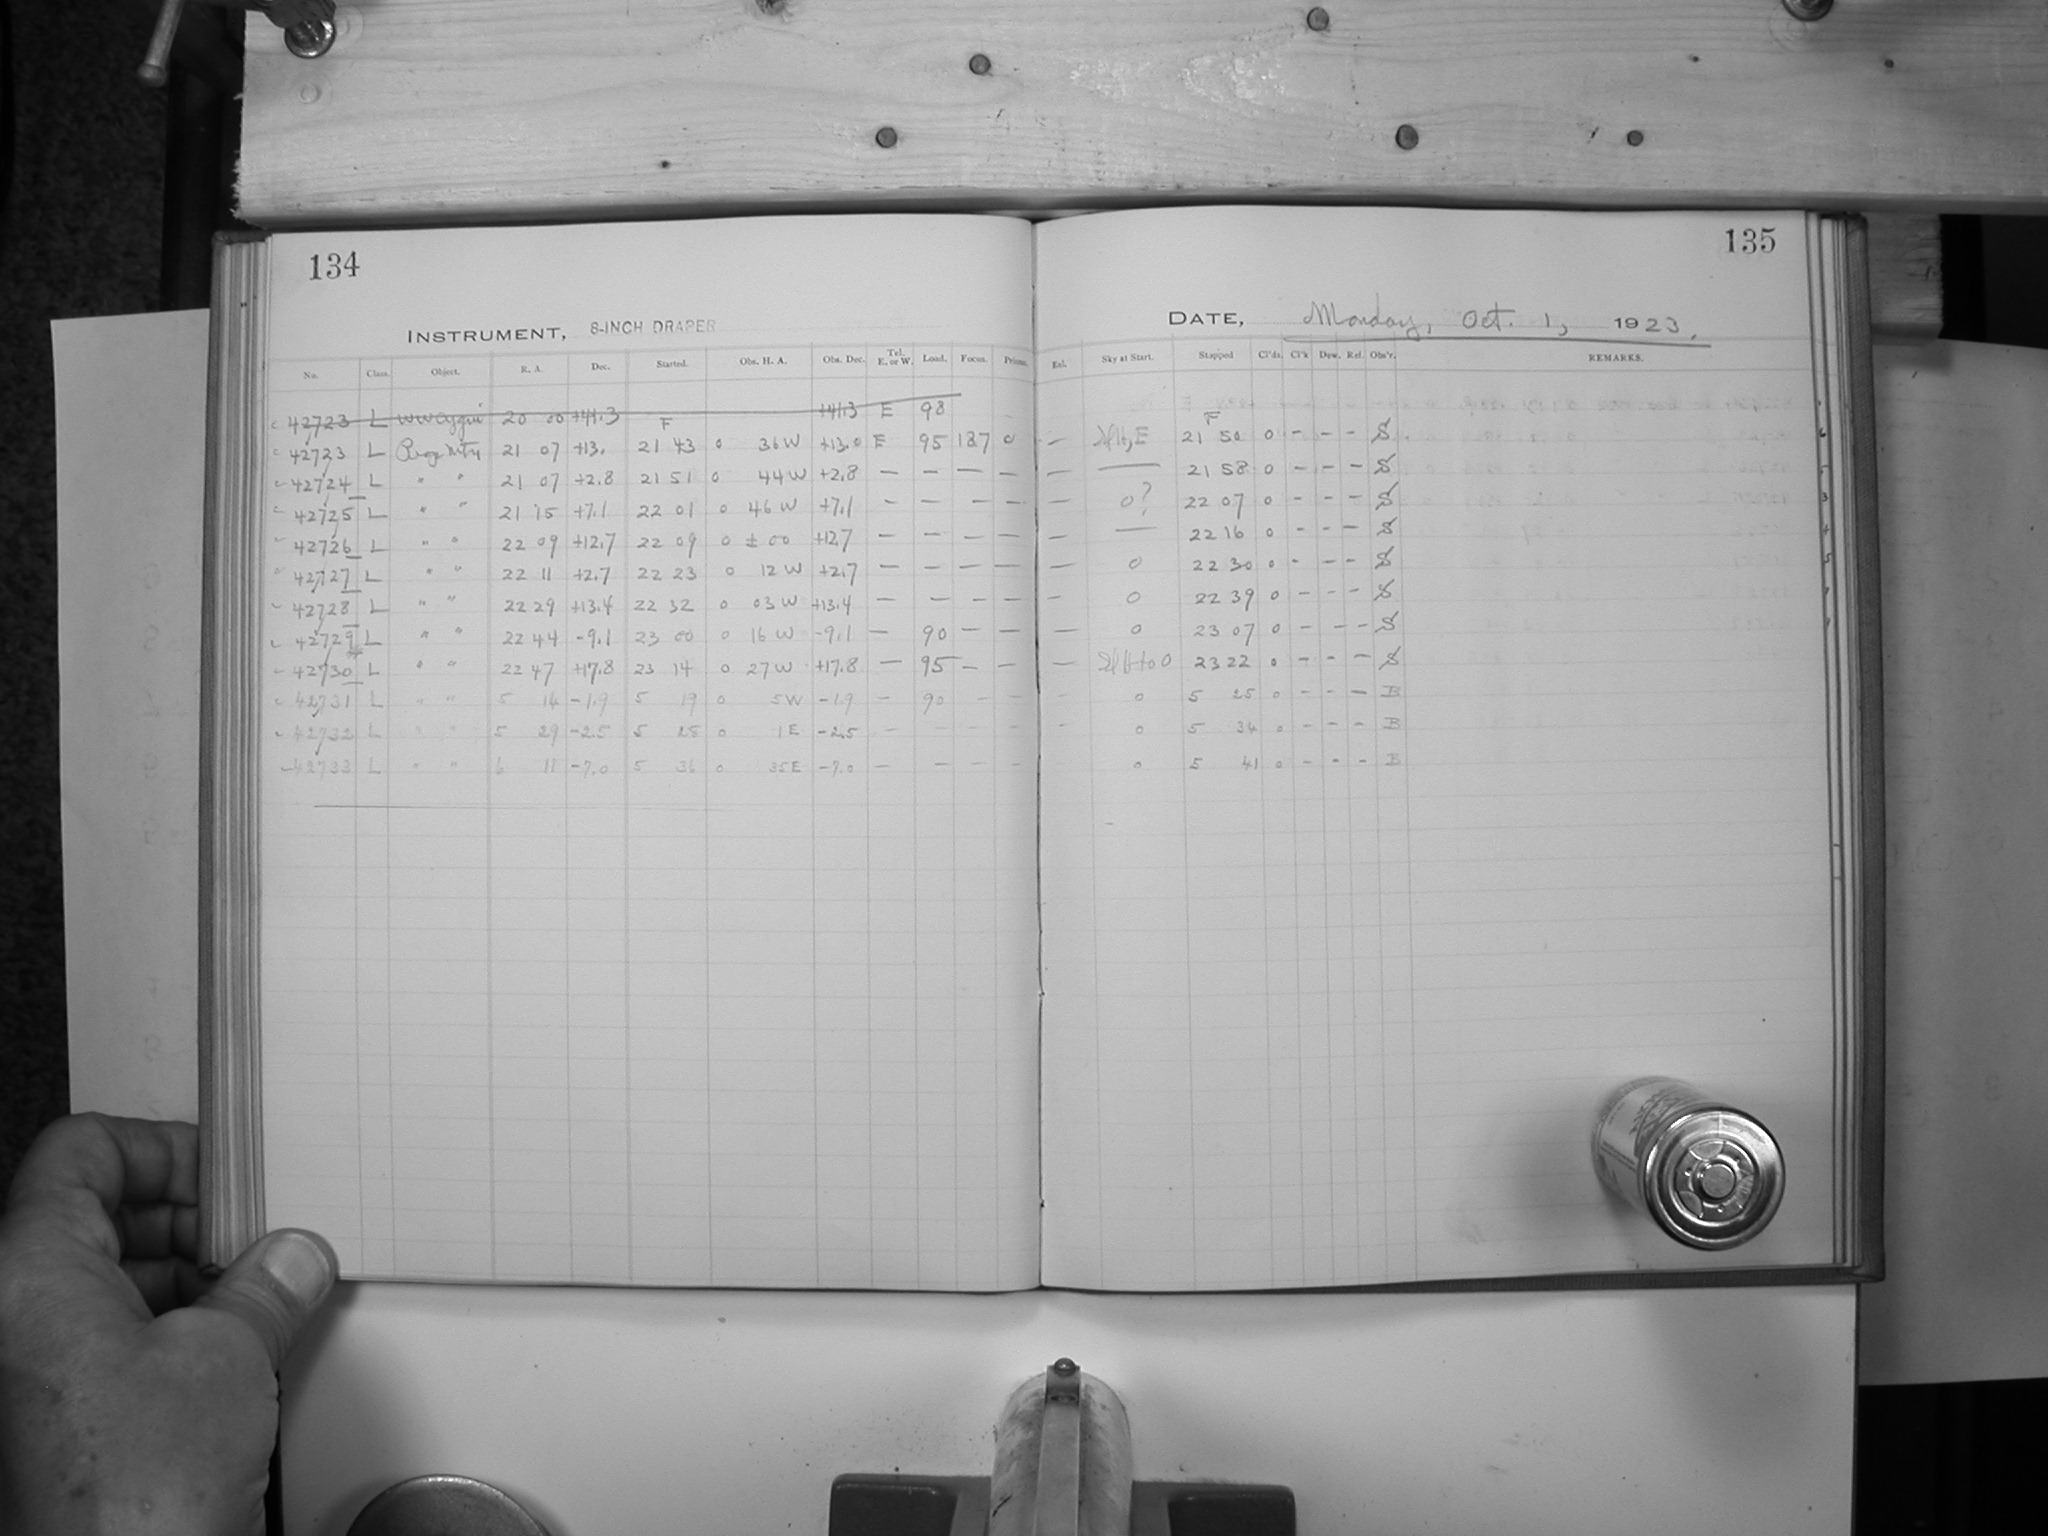 134
135
INSTRUMENT, 8-INCH DRAPER
DATE, Monday, Oct. 1, 1923.
No. Class. Object. R. A. Dec. Started. Obs. H. A. Obs. Dec. Tel. E. or W. Load. Focus. Prisms. Exl. Sky at Start. Stopped Cl'ds. Cl'k Dew. Rel. Obs'r. REMARKS.
42723 L WW Cygni 20 00 +41.3 +41.3 E 98
F F
42723 L 21 07 +13. 21 43 0 36 W +13.0 E 95 187 0 — 21 50 0 - - - S
42724 L " " 21 07 +2.8 21 51 0 44 W +2.8 — — — — — — 21 58 0 - - - S
42725 L " " 21 15 +7.1 22 01 0 46 W +7.1 — — — — — 0? 22 07 0 - - - S
42726 L " " 22 09 +12.7 22 09 0 ± 00 +12.7 — — — — — — 22 16 0 - - - S
42727 L " " 22 11 +2.7 22 23 0 12 W +2.7 — — — — — 0 22 30 0 - - - S
42728 L " " 22 29 +13.4 22 32 0 03 W +13.4 — — — — — 0 22 39 0 - - - S
42729 L " " 22 44 -9.1 23 00 0 16 W -9.1 — 90 — — — 0 23 07 0 - - - S
42730 L " " 22 47 +17.8 23 14 0 27 W +17.8 — 95 — — — 23 22 0 - - - S
42731 L " " 5 14 -1.9 5 19 0 5 W -1.9 - 90 - - - 0 5 25 0 - - - B
42732 L " " 5 29 -2.5 5 28 0 1 E -2.5 — - - - - 0 5 34 0 - - - B
42733 L " " 6 11 -7.0 5 36 0 35 E -7.0 — - - - 0 5 41 0 - - - B